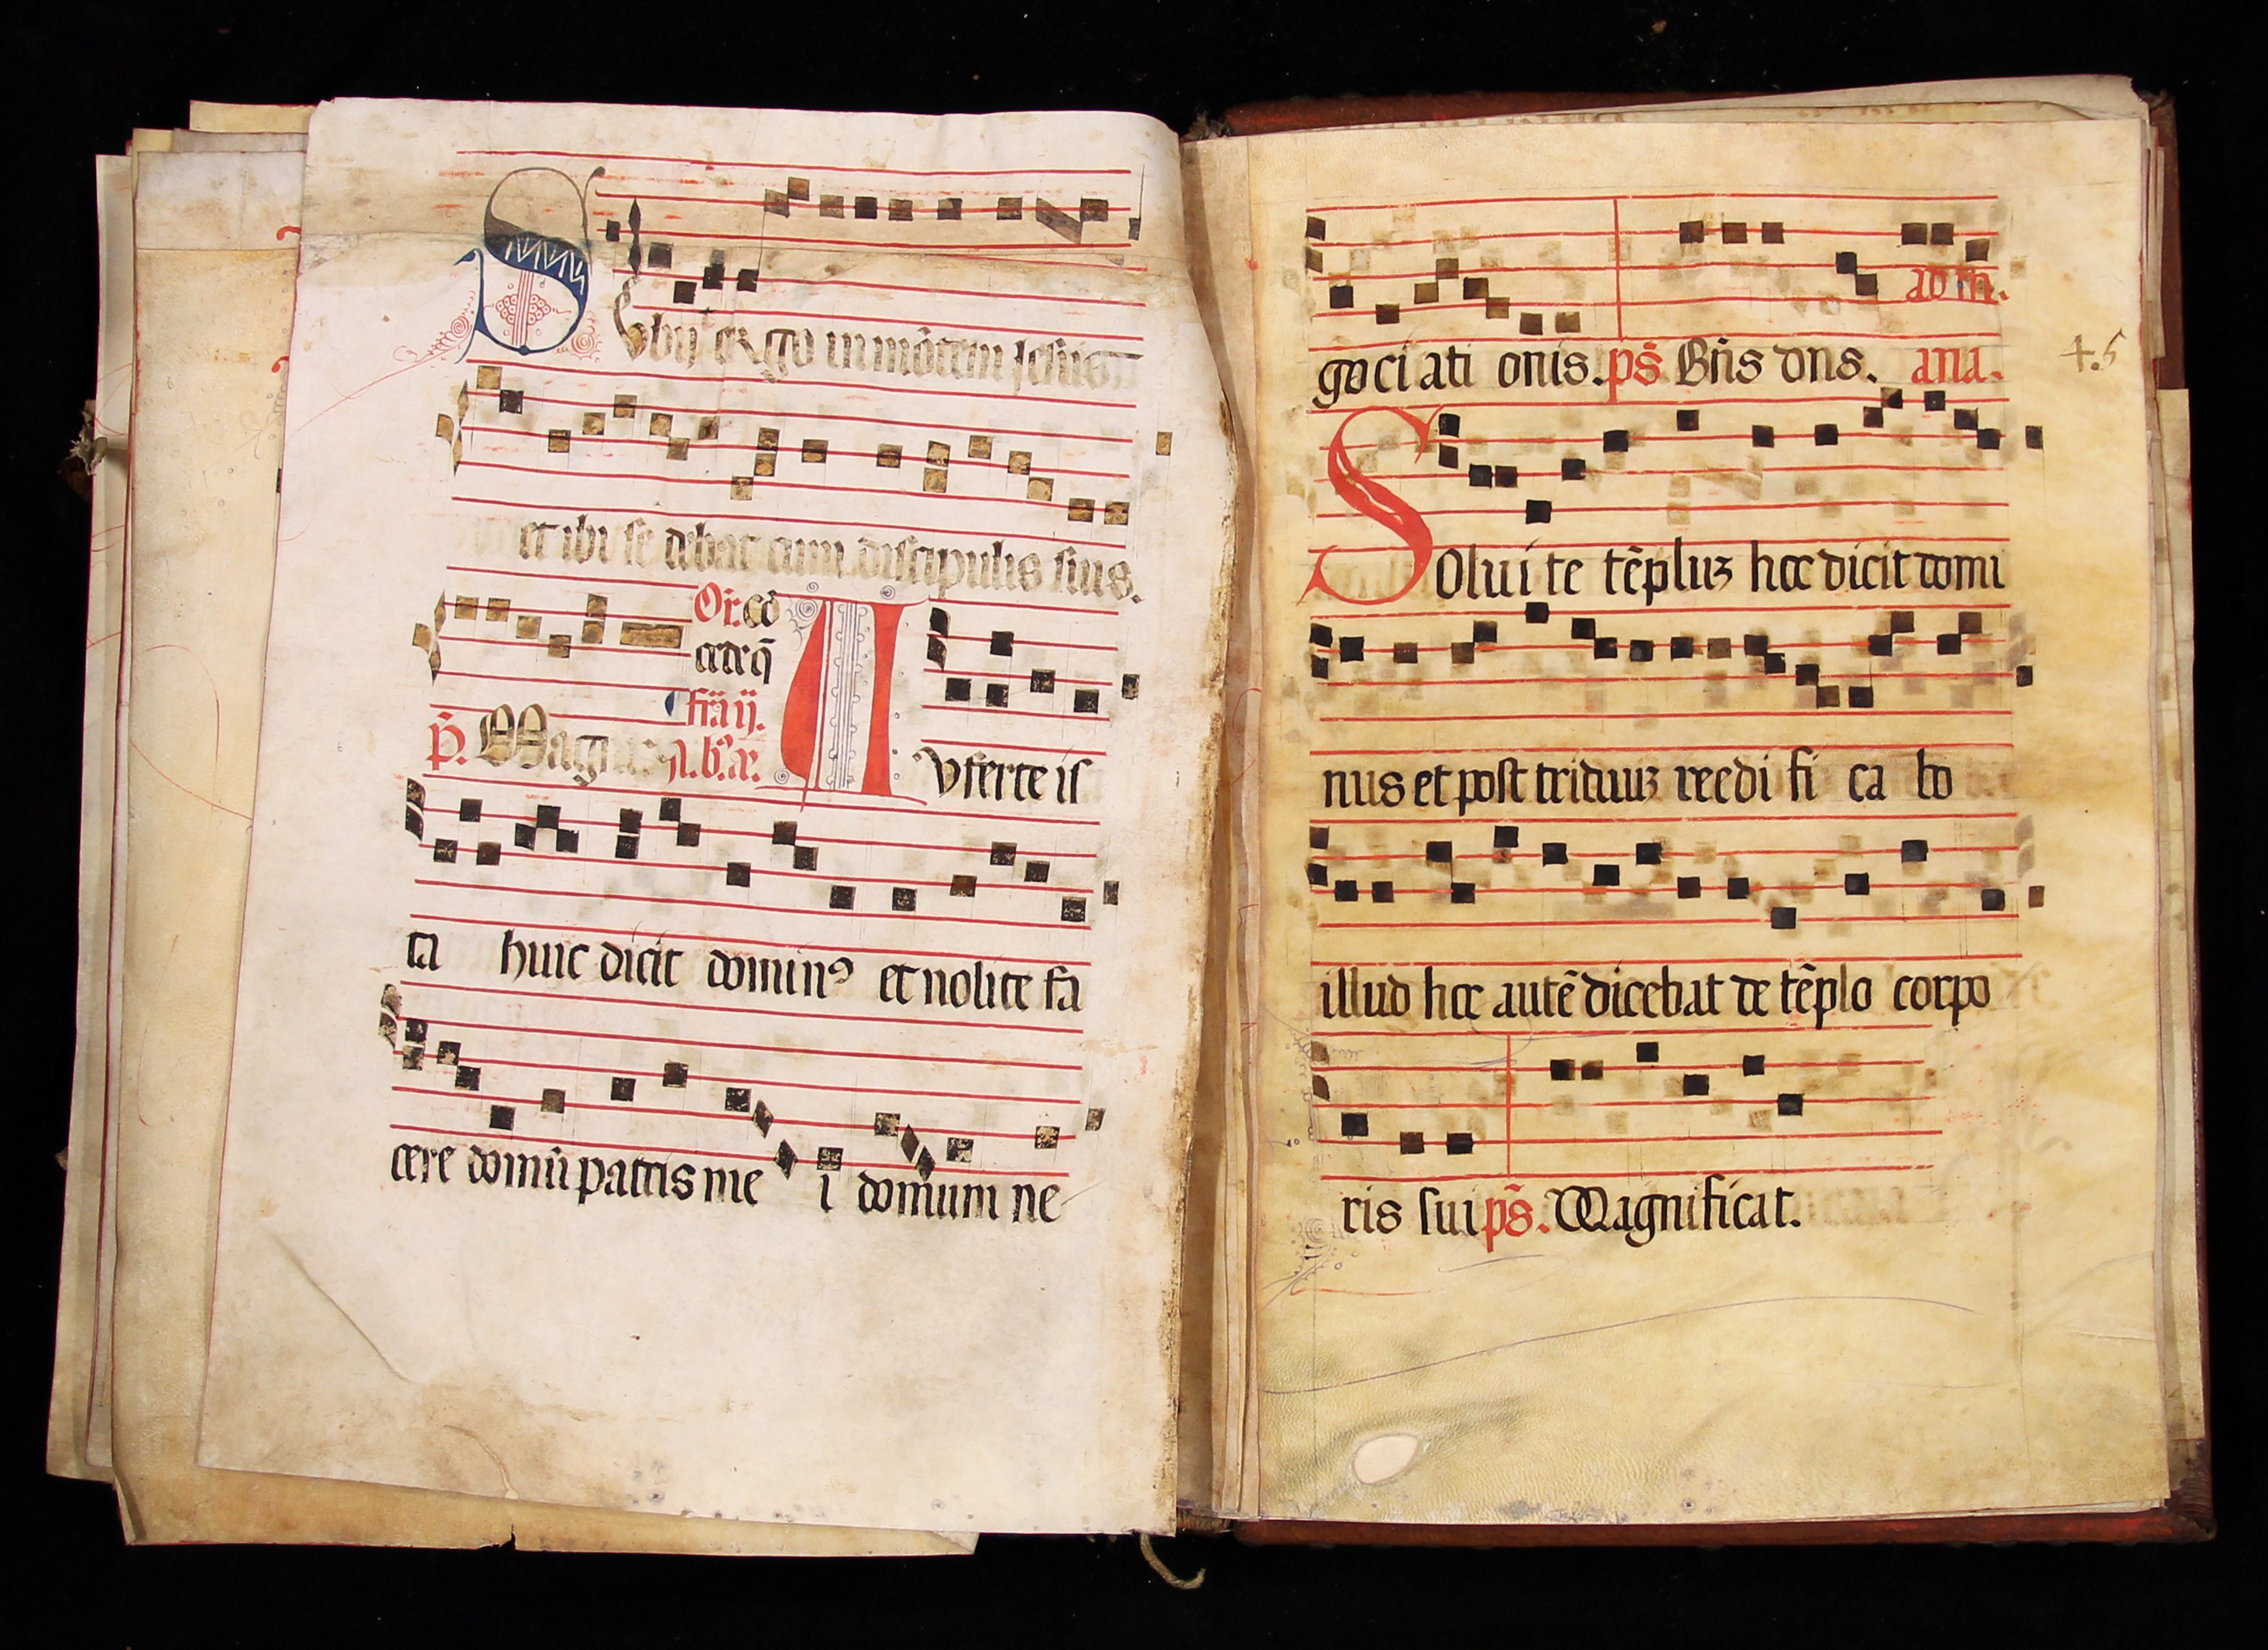 Subijt ergo in mõtem jesus
et ibi se debat cum discipulis suis.
Or. cõ
cateq̃
fr̃a ij.
p̃. Magni. A. b. a.
Auferte is
ta huic dicit dominꝰ et nolite fa
cere domũ patris me i domum ne
ad m.
gociati onis. ps̃ Bñs dns. ana.
45
Solui te tẽpluꝫ hoc dicit domi
nus et post triduuꝫ reedi fi ca bo
illud hoc autẽ dicebat de tẽplo corpo
ris sui ps̃. Magnificat.